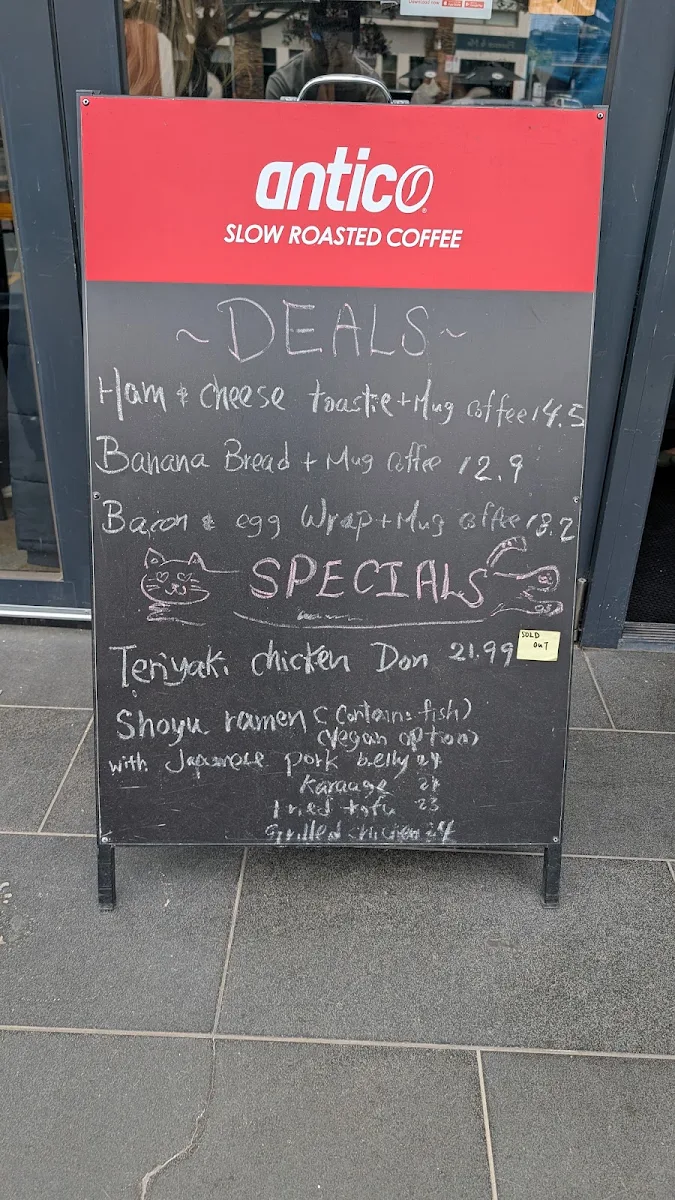 antico
SLOW ROASTED COFFEE
~DEALS~
Ham & cheese toastie + Mug coffee 14.5
Banana Bread + Mug coffee 12.9
Bacon & egg Wrap + Mug coffee 18.2
SPECIALS
Teriyaki chicken Don 21.99
SOLD
OUT
Shoyu ramen (Contains fish)
(Vegan option)
with Japanese pork belly 24
Karaage 24
Fried tofu 23
Grilled chicken 24